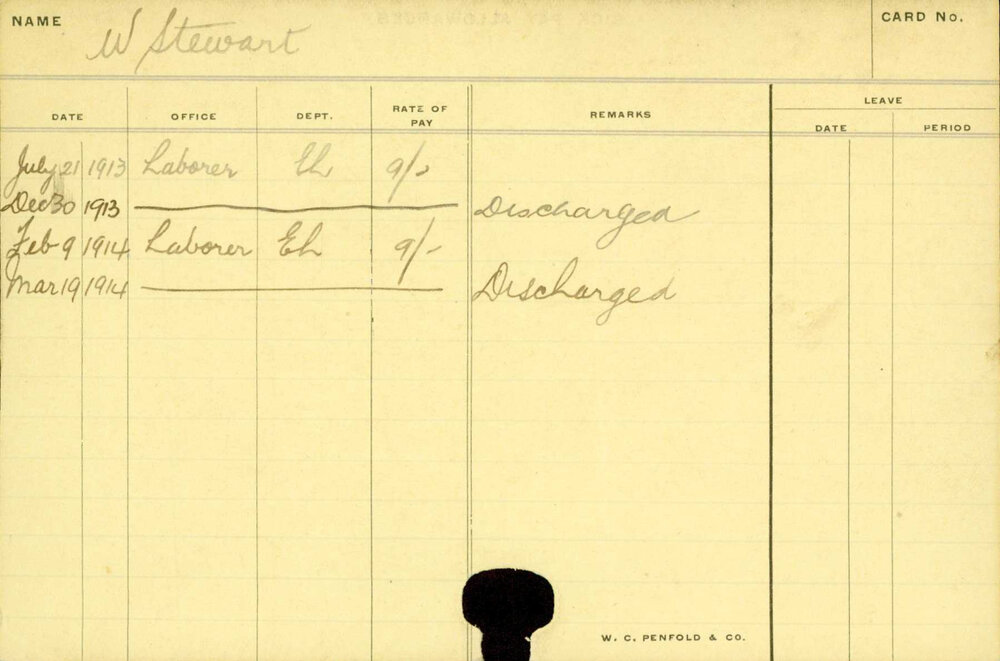 NAME W Stewart CARD No.
DATE OFFICE DEPT. RATE OF PAY REMARKS LEAVE
DATE PERIOD
July 21 1913 Laborer Eh 9/-
Dec 30 1913 Discharged
Feb 9 1914 Laborer Eh 9/-
Mar 19 1914 Discharged
W. C. PENFOLD & CO.